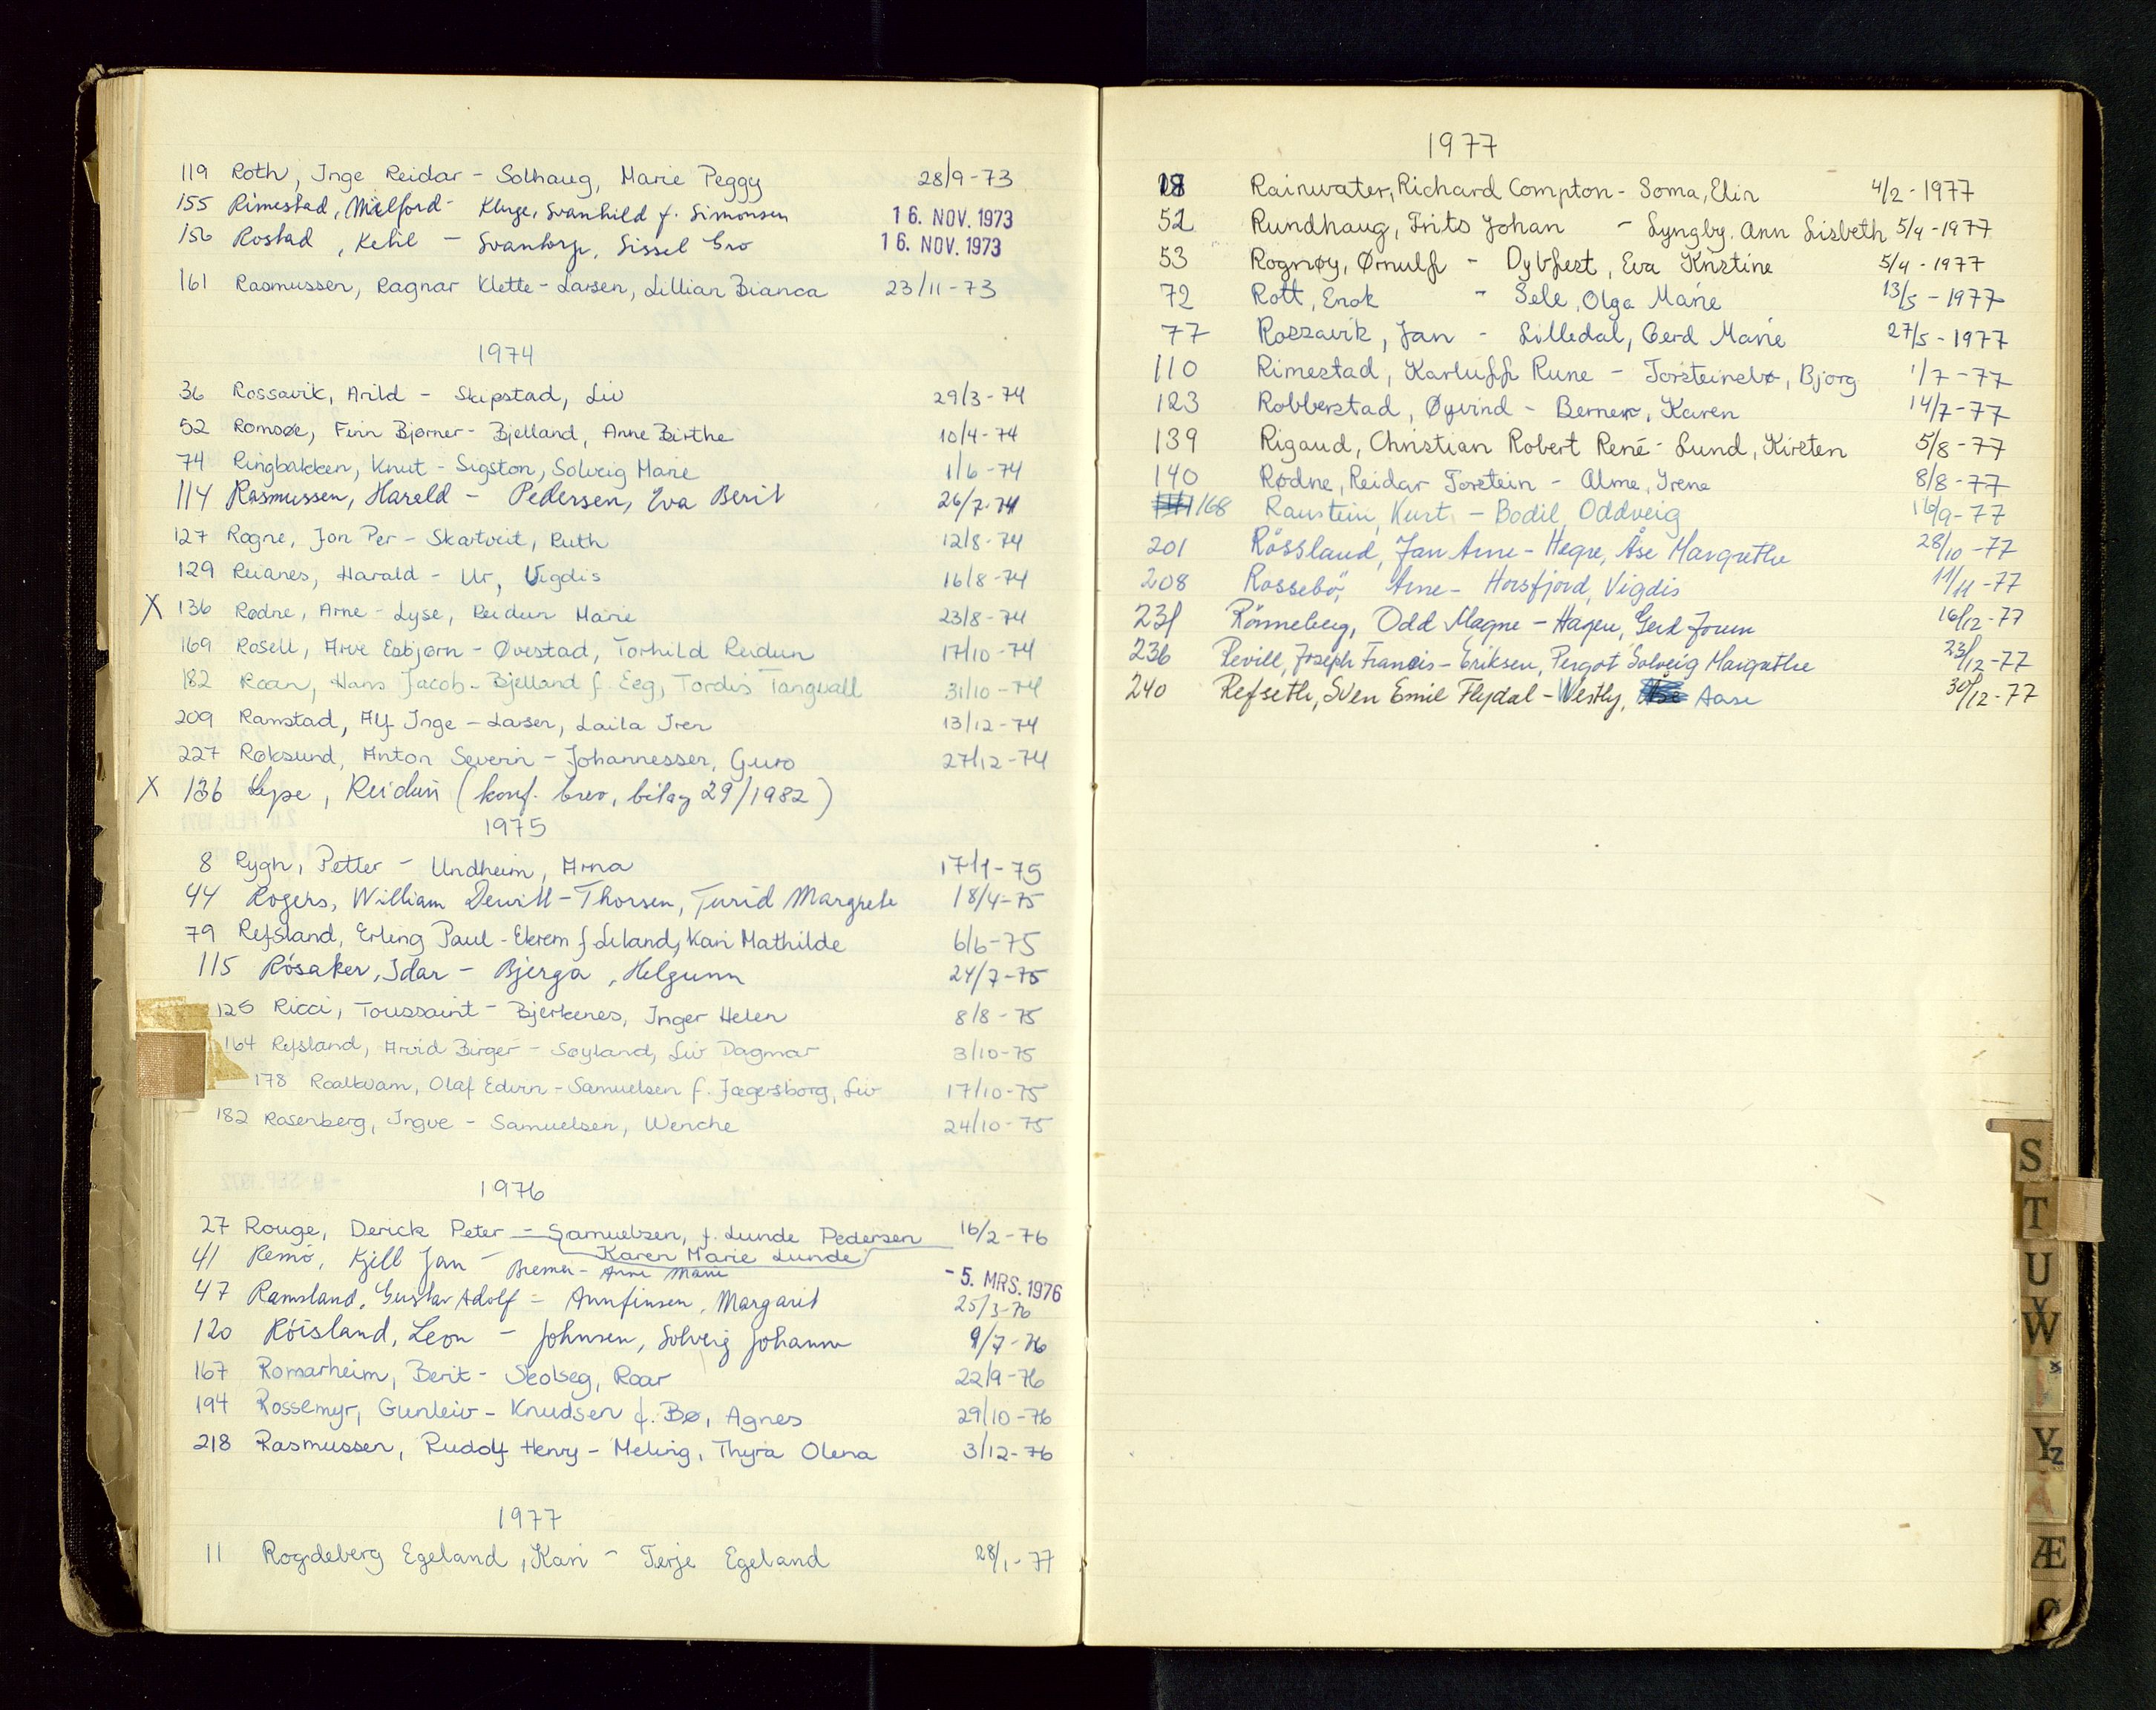 119 Roth, Inge Reidar - Solhaug, Marie Peggy 28/9-73
155 Rimestad, Milford - Kluge, Svanhild f. Simonsen 16. NOV. 1973
156 Rostad, Ketil - Svantorp, Sissel Gro 16. NOV. 1973
161 Rasmussen, Ragnar Klette - Larsen, Lillian Bianca 23/11-73
1974
36 Rossavik, Arild - Skipstad, Liv 29/3-74
52 Romsøe, Finn Bjørner - Bjelland, Anne Birthe 10/4-74
74 Ringbakken, Knut - Sigston, Solveig Marie 1/6-74
114 Rasmussen, Harald - Pedersen, Eva Berit 26/7-74
127 Rogne, Jon Per - Skartveit, Ruth 12/8-74
129 Reianes, Harald - Ur, Vigdis 16/8-74
X 136 Rødne, Arne - Lyse, Reidun Marie 23/8-74
169 Rosell, Arve Esbjørn - Øvestad, Torhild Reidun 17/10-74
182 Roan, Hans Jacob - Bjelland f. Eeg, Tordis Tangvall 31/10-74
209 Ramstad, Alf Inge - Larsen, Laila Iren 13/12-74
227 Røksund, Anton Severin - Johannessen, Guro 27/12-74
X 136 Lyse, Reidun (konf. brev, bilag 29/1982)
1975
8 Rygh, Petter - Undheim, Arna 17/1-75
44 Rogers, William Dewitt - Thorsen, Turid Margrete 18/4-75
79 Refsland, Erling Paul - Ekrem f Leland, Kari Mathilde 6/6-75
115 Rósaker, Idar - Bjerga, Helgunn 24/7-75
125 Ricci, Toussaint - Bjerkenes, Inger Helen 8/8-75
164 Refsland, Arvid Birger - Søyland, Liv Dagmar 3/10-75
178 Roalkvam, Olaf Edvin - Samuelsen f. Jægersborg, Liv 17/10-75
182 Rosenberg, Ingve - Samuelsen, Wenche 24/10-75
1976
27 Rouge, Derick Peter - Samuelsen, f. Lunde Pedersen 16/2-76
Karen Marie Lunde
41 Remö, Kjell Jan - Bremer - Anne Marie - 5. MRS. 1976
47 Ramsland, Gustav Adolf - Annfinsen, Margarit 25/3-76
120 Róisland, Leon - Johnsen, Solveig Johanne 9/7-76
167 Romarheim, Berit - Skolseg, Roar 22/9-76
194 Rossemyr, Gunleiv - Knudsen f. Bø, Agnes 29/10-76
218 Rasmussen, Rudolf Henry - Meling, Thyra Olena 3/12-76
1977
11 Rogdeberg Egeland, Kari - Terje Egeland 28/1-77
1977
18 Rainwater, Richard Compton - Soma, Elin 4/2-1977
52 Rundhaug, Frits Johan - Lyngby, Ann Lisbeth 5/4-1977
53 Rognøy, Ørnulf - Dybfest, Eva Kristine 5/4-1977
72 Rott, Enok - Sele, Olga Marie 13/5-1977
77 Rossavik, Jan - Lilledal, Gerd Marie 27/5-1977
110 Rimestad, Karluff Rune - Torsteinsbø, Bjørg 1/7-77
123 Robberstad, Øyvind - Berner, Karen 14/7-77
139 Rigaud, Christian Robert René - Lund, Kirsten 5/8-77
140 Rødne, Reidar Torstein - Alme, Irene 8/8-77
168 Raustein, Kurt - Bodil Oddveig 16/9-77
201 Rössland, Jan Arne - Hegre, Åse Margrethe 28/10-77
208 Rossebö, Arne - Horsfjord, Vigdis 11/11-77
231 Rönneberg, Odd Magne - Hagen, Gerd Jorunn 16/12-77
236 Revill, Joseph Francis - Eriksen, Pergot Solveig Margrethe 23/12-77
240 Refseth, Sven Emil Flydal - Westly, Aase 30/12-77
S
T
U
V
W
Y
Z
Æ